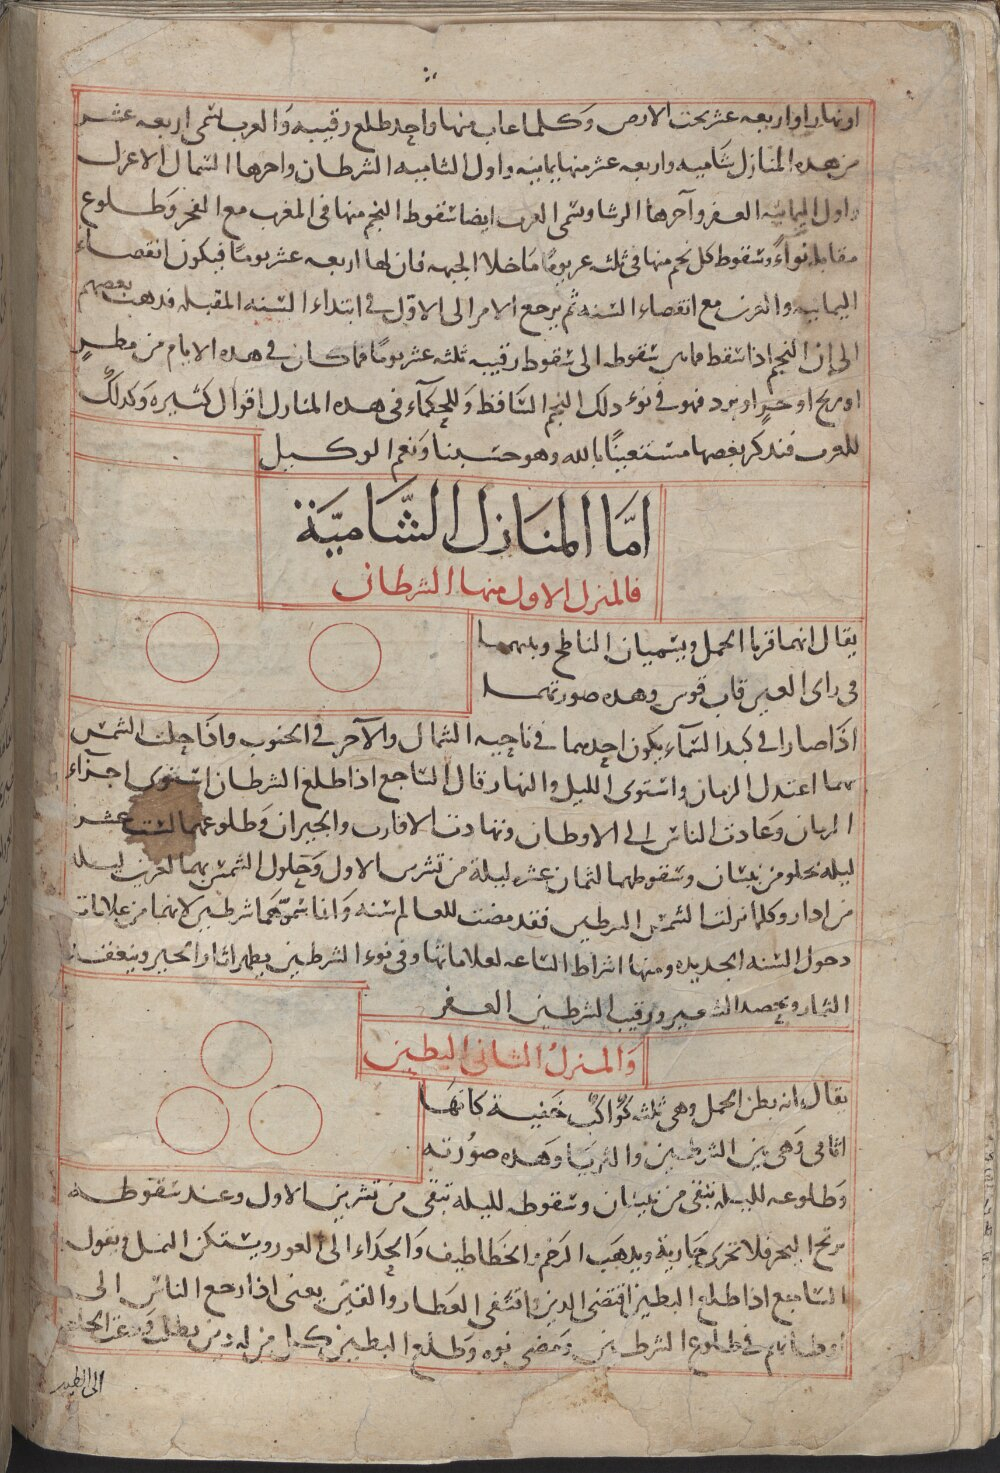 او نهارا واربعه عشر تحت الارض وكلما غاب منها واحد طلع رقيبه والعرب تسمى اربعه عشر
من هذه المنازل شاميه واربعه عشر منها يمانيه واول الشاميه الشرطان واخرها السماك الاعزل
واول اليمانيه الغفر وآخرها الرشا وتسمى العرب ايضا سقوط النجم منها فى المغرب مع الفجر وطلوع
مقابله نوآء وسقوط كل نجم منها فى ثلثه عشر يوما ما خلا الجبهه فان لها اربعه عشر يوما فيكون انقضاء
اليمانيه مع انقضاء السنه ثم يرجع الامر الى الاول فى ابتداء السنه المقبله فذهب بعضهم
الى ان النجم اذا سقط فما بين سقوطه الى سقوط رقيبه ثلثه عشر يوما فما كان فى هذه الايام من مطرٍ
او ريح او حرٍ او برد فهو فى نوء ذلك النجم الساقط وللحكمآء فى هذه المنازل اقوال كثيره وكذلك
للعرب فنذكر بعضها مستعينًا بالله وهو حسبنا ونعم الوكيل
امّا المنازل الشّاميّة
فالمنزل الاول منها الشرطان
يقال انهما قرنا الحمل ويسميان الناطح وبينهما
فى راى العين قاب قوس وهذه صورتهما
اذا صارا فى كبد السمآء يكون احدهما فى ناحيه الشمال والآخر فى الجنوب واذا حلت الشمس
بهما اعتدل الزمان واستوى الليل والنهار قال الساجع اذا طلع الشرطان استوى اجزاء
الزمان وعادت الناس الى الاوطان وتهادت الاقارب والجيران وطلوعهما لست عشر
ليله تخلو من نيسان وسقوطهما لثمان عشره ليلة من تشرين الاول وحلول الشمس بهما لعشرين ليله
من اذار وكلما نزلت الشمس الشرطين فقد مضت للعالم سنه وانما سموهما شرطين لانهما من علامات
دخول السنه الجديده ومنها اشراط الساعه لعلاماتها وفى نوء الشرطين يظهر اثار الخير وينعقد
الثمار ويحصد الشعير ورقيب الشرطين الغفر
والمنزل الثانى البطين
يقال انه بطن الحمل وهى ثلثه كواكب خفية كانها
اثافى وهى بين الشرطين والثريا وهذه صورته
وطلوعه لليله تبقى من نيسان وسقوطه لليله تبقى من تشرين الاول وعند سقوطه
يرتج البحر فلا تجرى جارية ويذهب الرخم والخطاطيف والحداء الى الغور ويستكن النمل ويقول
الساجع اذا طلع البطين اقتضى الدين واقتفى العطار والقين يعنى اذا رجع الناس الى
اوطانهم فى طلوع الشرطين ومضى نوه وطلع البطين من له دين
الى انطير